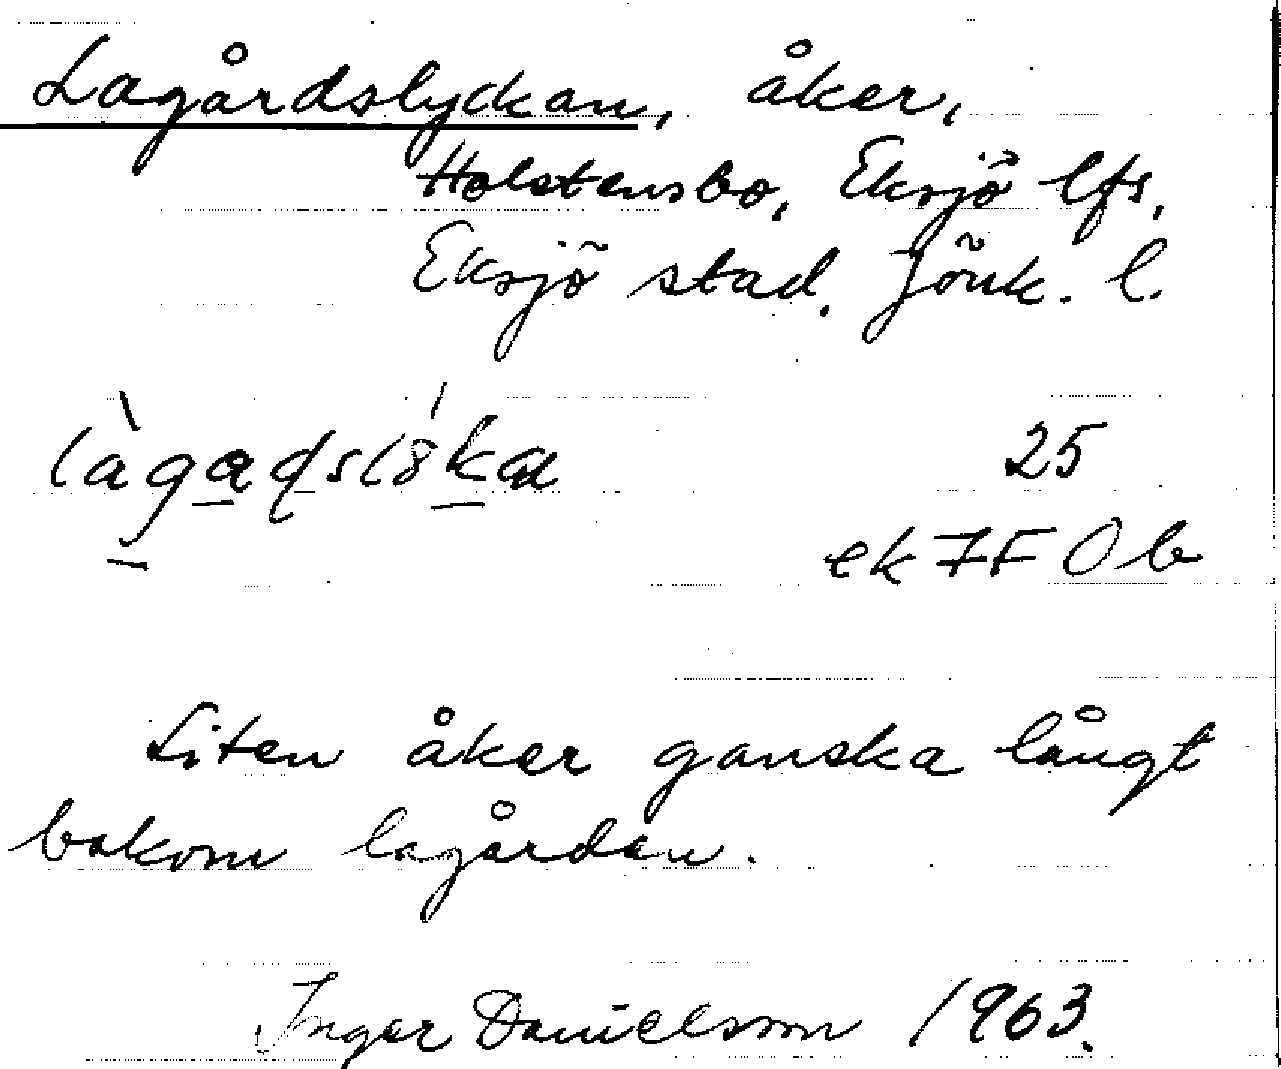 Lagårdslyckan, åker,
Holstensbo, Eksjö lfs,
Eksjö stad. Jönk. l.
25
ek 7F 0 b
Liten åker ganska långt
bakom lagårdan.
Inger Danielsson 1963.